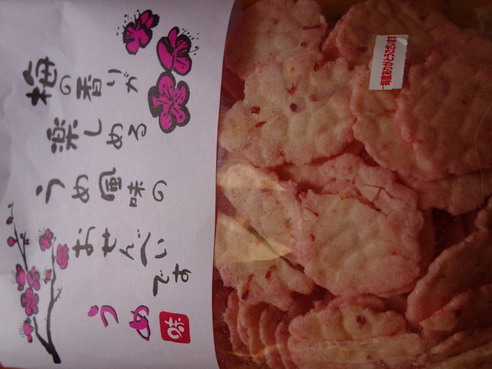 梅の香りが
楽しめる
うめ風味の
おせんべい
です
うめ
味